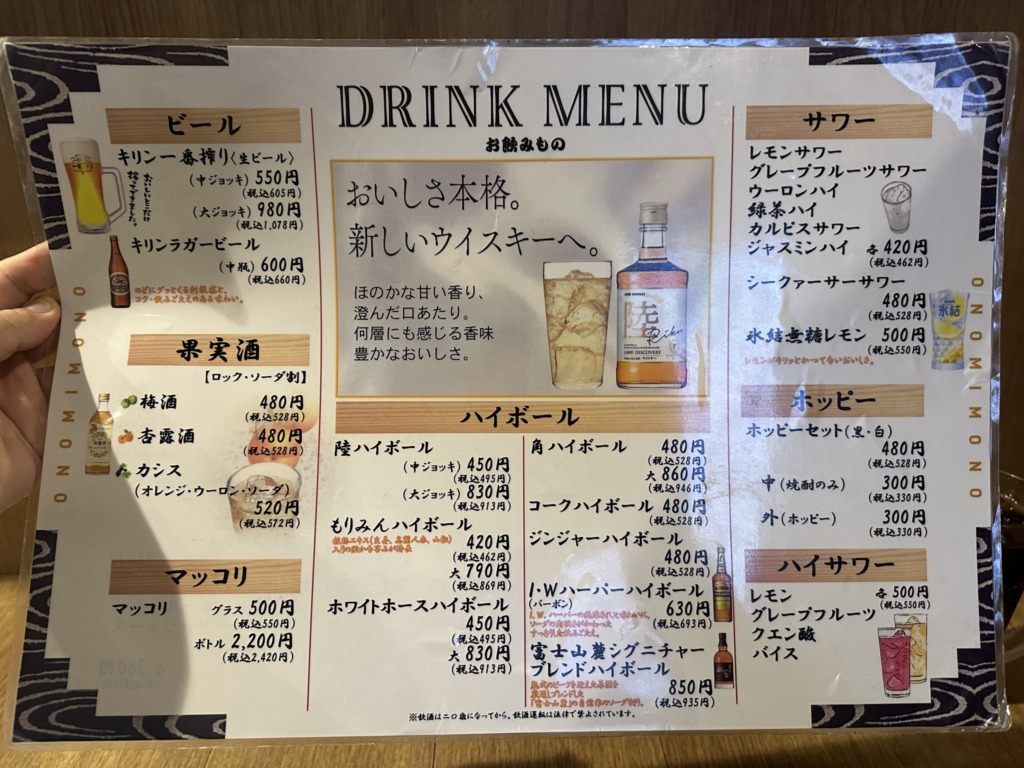 DRINK MENU
お飲みもの
ビール
キリン一番搾り〈生ビール〉
(中ジョッキ) 550円
(税込605円)
(大ジョッキ) 980円
(税込1,078円)
おいしいとこだけ
搾ってできました。
キリンラガービール
(中瓶) 600円
(税込660円)
のどにグッとくる刺激感と、
コク・飲みごたえのある味わい。
果実酒
【ロック・ソーダ割】
梅酒 480円
(税込528円)
杏露酒 480円
(税込528円)
カシス
(オレンジ・ウーロン・ソーダ)
520円
(税込572円)
マッコリ
マッコリ グラス 500円
(税込550円)
ボトル 2,200円
(税込2,420円)
ONOMIMONO
おいしさ本格。
新しいウイスキーへ。
ほのかな甘い香り、
澄んだ口あたり。
何層にも感じる香味
豊かなおいしさ。
陸
Riku
LAND DISCOVERY
ハイボール
陸ハイボール
(中ジョッキ) 450円
(税込495円)
(大ジョッキ) 830円
(税込913円)
もりみんハイボール
入りの微かな苦みが特長
420円
(税込462円)
大 790円
(税込869円)
ホワイトホースハイボール
450円
(税込495円)
大 830円
(税込913円)
角ハイボール 480円
(税込528円)
大 860円
(税込946円)
コークハイボール 480円
(税込528円)
ジンジャーハイボール
480円
(税込528円)
I・Wハーパーハイボール
(バーボン) 630円
(税込693円)
すっきりした飲みごたえ。
富士山麓シグニチャー
ブレンドハイボール
850円
(税込935円)
厳選しブレンドした
※飲酒は二〇歳になってから。飲酒運転は法律で禁止されています。
サワー
レモンサワー
グレープフルーツサワー
ウーロンハイ
緑茶ハイ
カルピスサワー
ジャスミンハイ 各 420円
(税込462円)
シークァーサーサワー
480円
(税込528円)
氷結無糖レモン 500円
(税込550円)
レモンがキリッとかつてないおいしさ。
氷結
ホッピー
ホッピーセット(黒・白)
480円
(税込528円)
中(焼酎のみ) 300円
(税込330円)
外(ホッピー) 300円
(税込330円)
ハイサワー
レモン 各 500円
(税込550円)
グレープフルーツ
クエン酸
バイス
ONOMIMONO